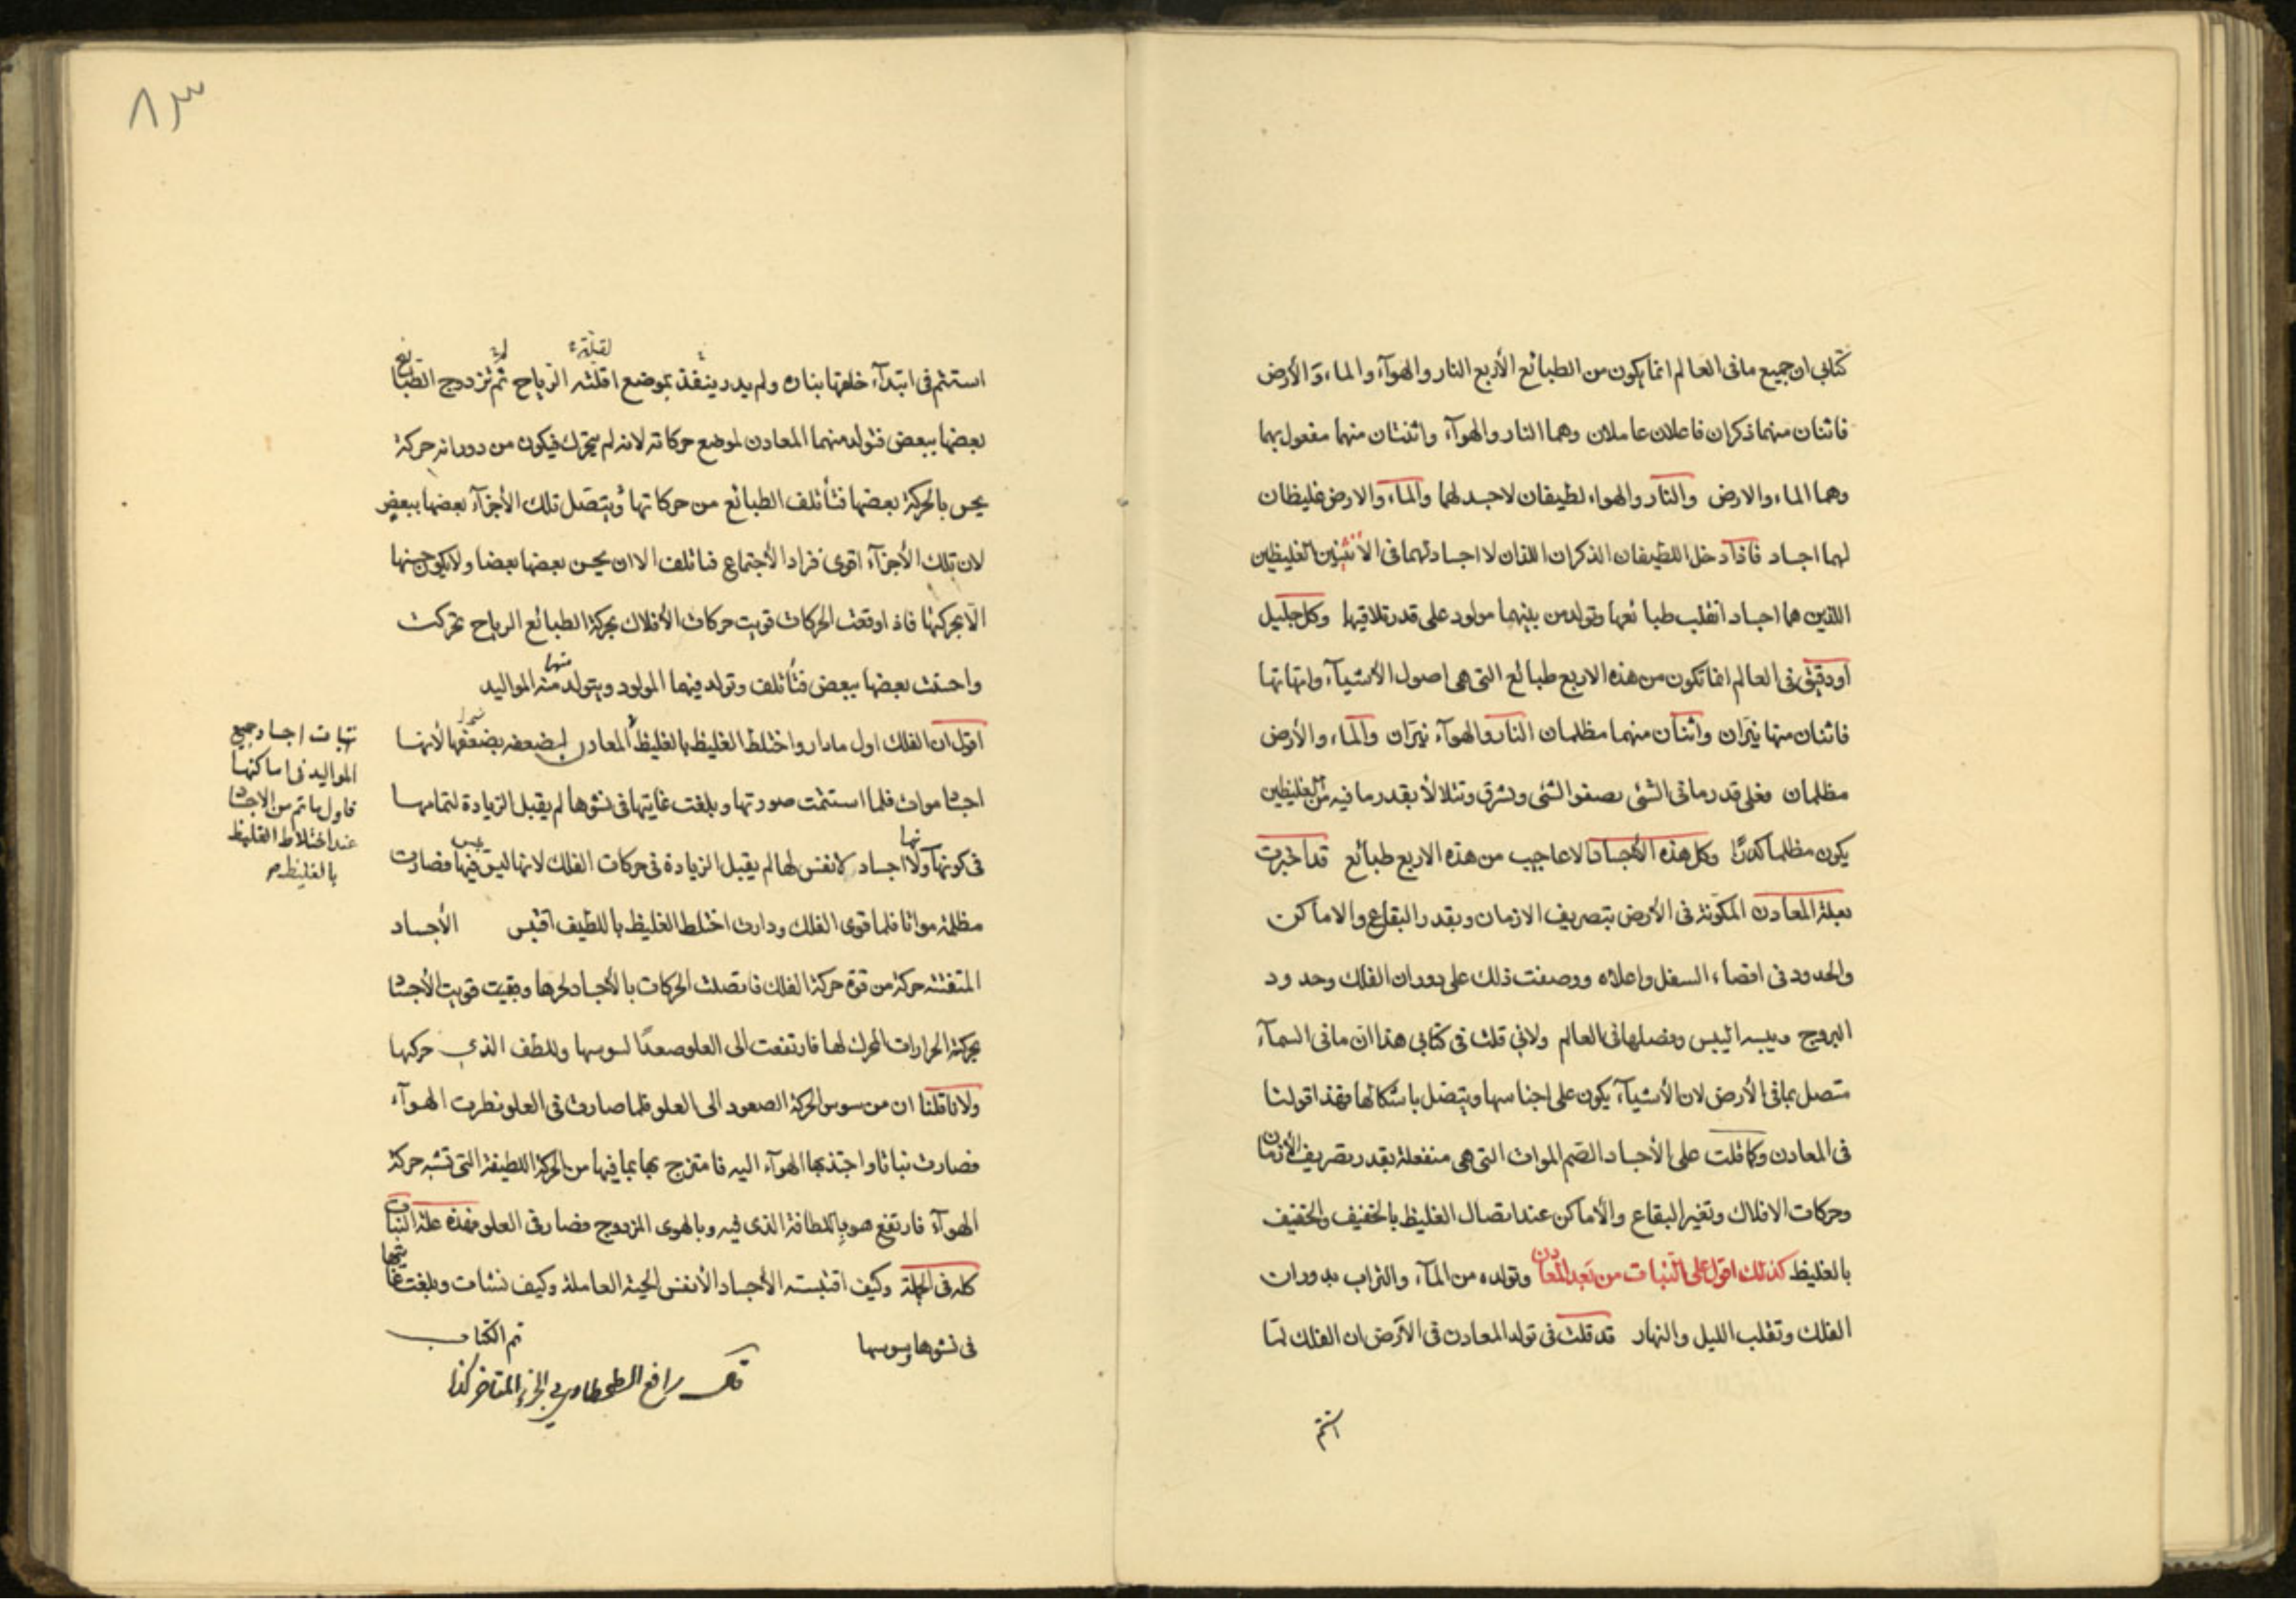 كتابى ان جميع ما فى العالم انما يكون من الطبائع الأربع النار والهوآء والماء والأرض
فاثنان منهما ذكران فاعلان عاملان وهما النار والهوآء واثنتان منهما مفعول بهما
وهما الماء والارض والنار والهواء لطيفان لاجسد لهما والماء والارض غليظان
لهما اجساد فاذا دخل اللطيفان الذكران اللذان لا اجساد لهما فى الأنثيين الغليظين
اللذين هما اجساد انقلب طبائعها وتولد من بينهما مولود على قدر تلاقيها وكل جليل
اودقيق فى العالم انما تكون من هذه الاربع طبائع التى هى اصول الأشيآء وامهاتها
فاثنان منها نيران واثنان منهما مظلمان النار والهوآء نيران والماء والأرض
مظلمان فعلى قدر ما فى الشئ يصفو الشئ ويشرق ويتلألأ بقدر ما فيه من الغليظين
يكون مظلما كدرًا وكل هذه الأجساد الاعاجيب من هذه الاربع طبائع قد اخبرت
بعلة المعادن المكونة فى الأرض بتصريف الازمان وبقدر البقاع والاماكن
والحدود فى اقصاء السفل واعلاه ووصفت ذلك على دوران الفلك وحدود
البروج ويبسه اليبس وفصلها فى العالم ولانى قلت فى كتابى هذا ان ما فى السمآء
متصل بما فى الأرض لان الأشيآء يكون على اجناسها ويتصل باشكالها فهذا قولنا
فى المعادن وكما قلت على الأجساد الصم الموات التى هى منفعلة بقدر تصريف الأزمان
وحركات الافلاك وتغير البقاع والأماكن عند اتصال الغليظ بالخفيف والخفيف
بالغليظ كذلك اقول على النبات من بعد المعادن وتولده من المآء والتراب بدوران
الفلك وتقلب الليل والنهار قد قلت فى تولد المعادن فى الأرض ان الفلك لما
استتم
٨٣
استتم فى ابتدآء خلقها بنان ولم يدر ينفذ بموضع اقلته الرياح ثم تزدوج الطبائع
لقلة
بعضها ببعض فتولد منهما المعادن لموضع حركاته لانه لم يتحرك فيكون من دورانه حركة
يحس بالحركة بعضها فتأتلف الطبائع من حركاتها ويتصل تلك الأجزآء بعضها ببعض
لان تلك الأجزآء اقوى فراد الأجتماع فتاتلف الا ان يحس بعضها بعضا ولا يكون حسنها
الا بحركتها فاذا وقعت الحركات قويت حركات الأفلاك بحركة الطبائع الرياح تحركت
واحست بعضها ببعض فتأتلف وتولد فيهما المولود ويتولد منه المواليد
منها
اقول ان الفلك اول ما دار واختلط الغليظ بالغليظ المعادن لبضعضه بضعفها لأنها
اجثا موات فلما استتمت صورتها وبلغت غايتها فى نشوها لم يقبل الزيادة لتمامها
فى كونها ولا اجساد لانفس لها لم يقبل الزيادة فى حركات الفلك لانها ليس فيها فصارت
مظلمة مواتا فلما قوى الفلك ودارت اختلط الغليظ باللطيف اقتبس الأجساد
المتفتنه حركة من قوة حركة الفلك فاتصلت الحركات بالأجساد لحرها وبقيت قويت الأجثا
بحركة الحرارات المحرك لها فارتفعت الى العلو صعدًا لسوسها وللطف الذى حركها
ولانا قلنا ان من سوس الحركة الصعود الى العلو فلما صارت فى العلو نظرت الهوآء
فصارت نباتا واجتذبها الهوآء اليه فامتزج بها بما فيها من الحركة اللطيفة التى تشبه حركة
الهوآء فارتفع هو باللطافة الذى فيه وبالهوى المزدوج فصار فى العلو فهذه علة النبات
كله فى الجملة وكيف اقتبسته الأجساد الأنفس الحية العاملة وكيف نشات وبلغت غايتها
فى نشوها وسوسها تم الكتاب
رافع الطحطاوى الجزء المتاخر كذا
نبات اجساد جميع
المواليد فى اماكنها
فاول ما تم من الاجثا
عند اختلاط الغليظ
بالغليظ صح